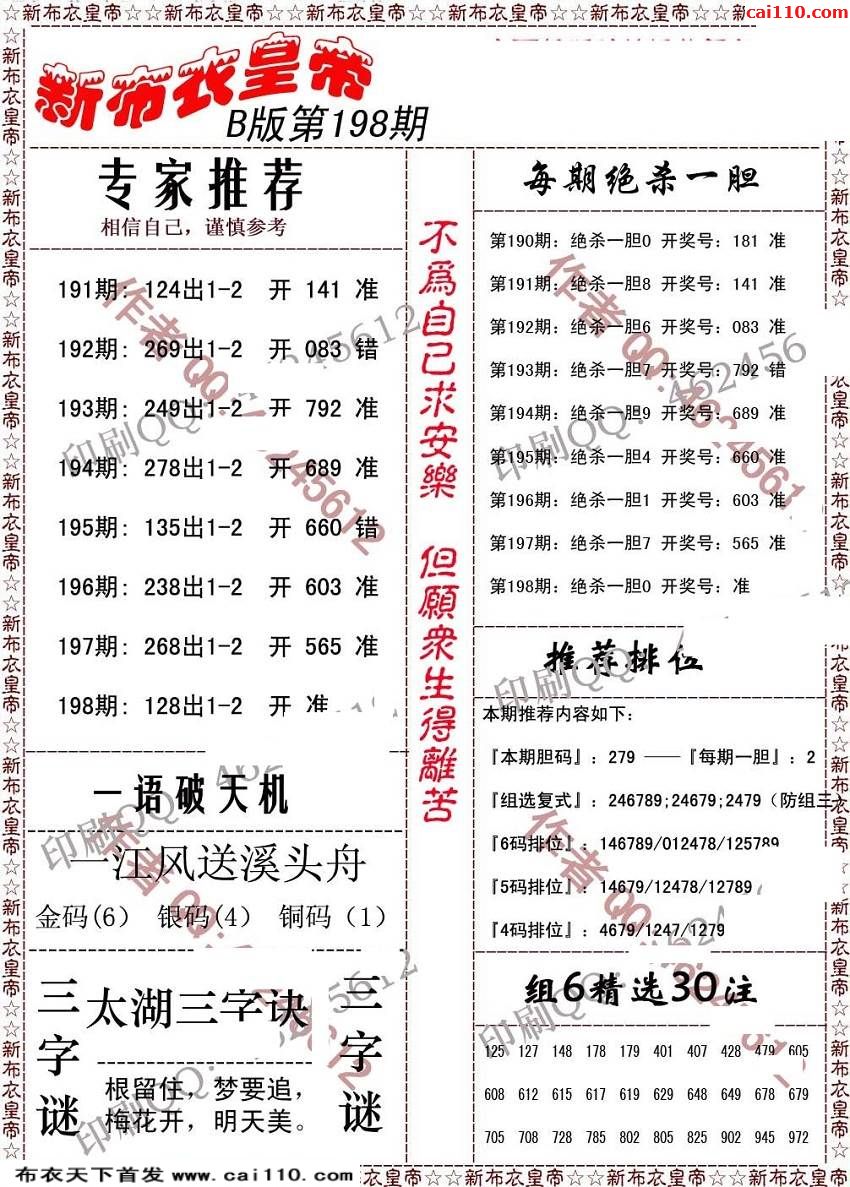 ☆新布衣皇帝☆☆新布衣皇帝☆☆新布衣皇帝☆☆新布衣皇帝☆☆新布衣皇帝☆☆新布衣皇帝☆☆新
cai110.com
新布衣皇帝
B版第198期
专家推荐
相信自己，谨慎参考
191期: 124出1-2 开 141 准
192期: 269出1-2 开 083 错
193期: 249出1-2 开 792 准
194期: 278出1-2 开 689 准
195期: 135出1-2 开 660 错
196期: 238出1-2 开 603 准
197期: 268出1-2 开 565 准
198期: 128出1-2 开 准
一语破天机
一江风送溪头舟
金码(6) 银码(4) 铜码（1）
三字谜
太湖三字诀
根留住，梦要追，
梅花开，明天美。
三字谜
不為自己求安樂 但願眾生得離苦
每期绝杀一胆
第190期: 绝杀一胆0 开奖号: 181 准
第191期: 绝杀一胆8 开奖号: 141 准
第192期: 绝杀一胆6 开奖号: 083 准
第193期: 绝杀一胆7 开奖号: 792 错
第194期: 绝杀一胆9 开奖号: 689 准
第195期: 绝杀一胆4 开奖号: 660 准
第196期: 绝杀一胆1 开奖号: 603 准
第197期: 绝杀一胆7 开奖号: 565 准
第198期: 绝杀一胆0 开奖号: 准
推荐排位
本期推荐内容如下:
『本期胆码』: 279 ——『每期一胆』: 2
『组选复式』: 246789;24679;2479（防组三）
『6码排位』: 146789/012478/125789
『5码排位』: 14679/12478/12789
『4码排位』: 4679/1247/1279
组6精选30注
125 127 148 178 179 401 407 428 479 605
608 612 615 617 619 629 648 649 678 679
705 708 728 785 802 805 825 902 945 972
布衣天下首发 www.cai110.com
衣皇帝☆☆新布衣皇帝☆☆新布衣皇帝☆☆新布衣皇帝☆